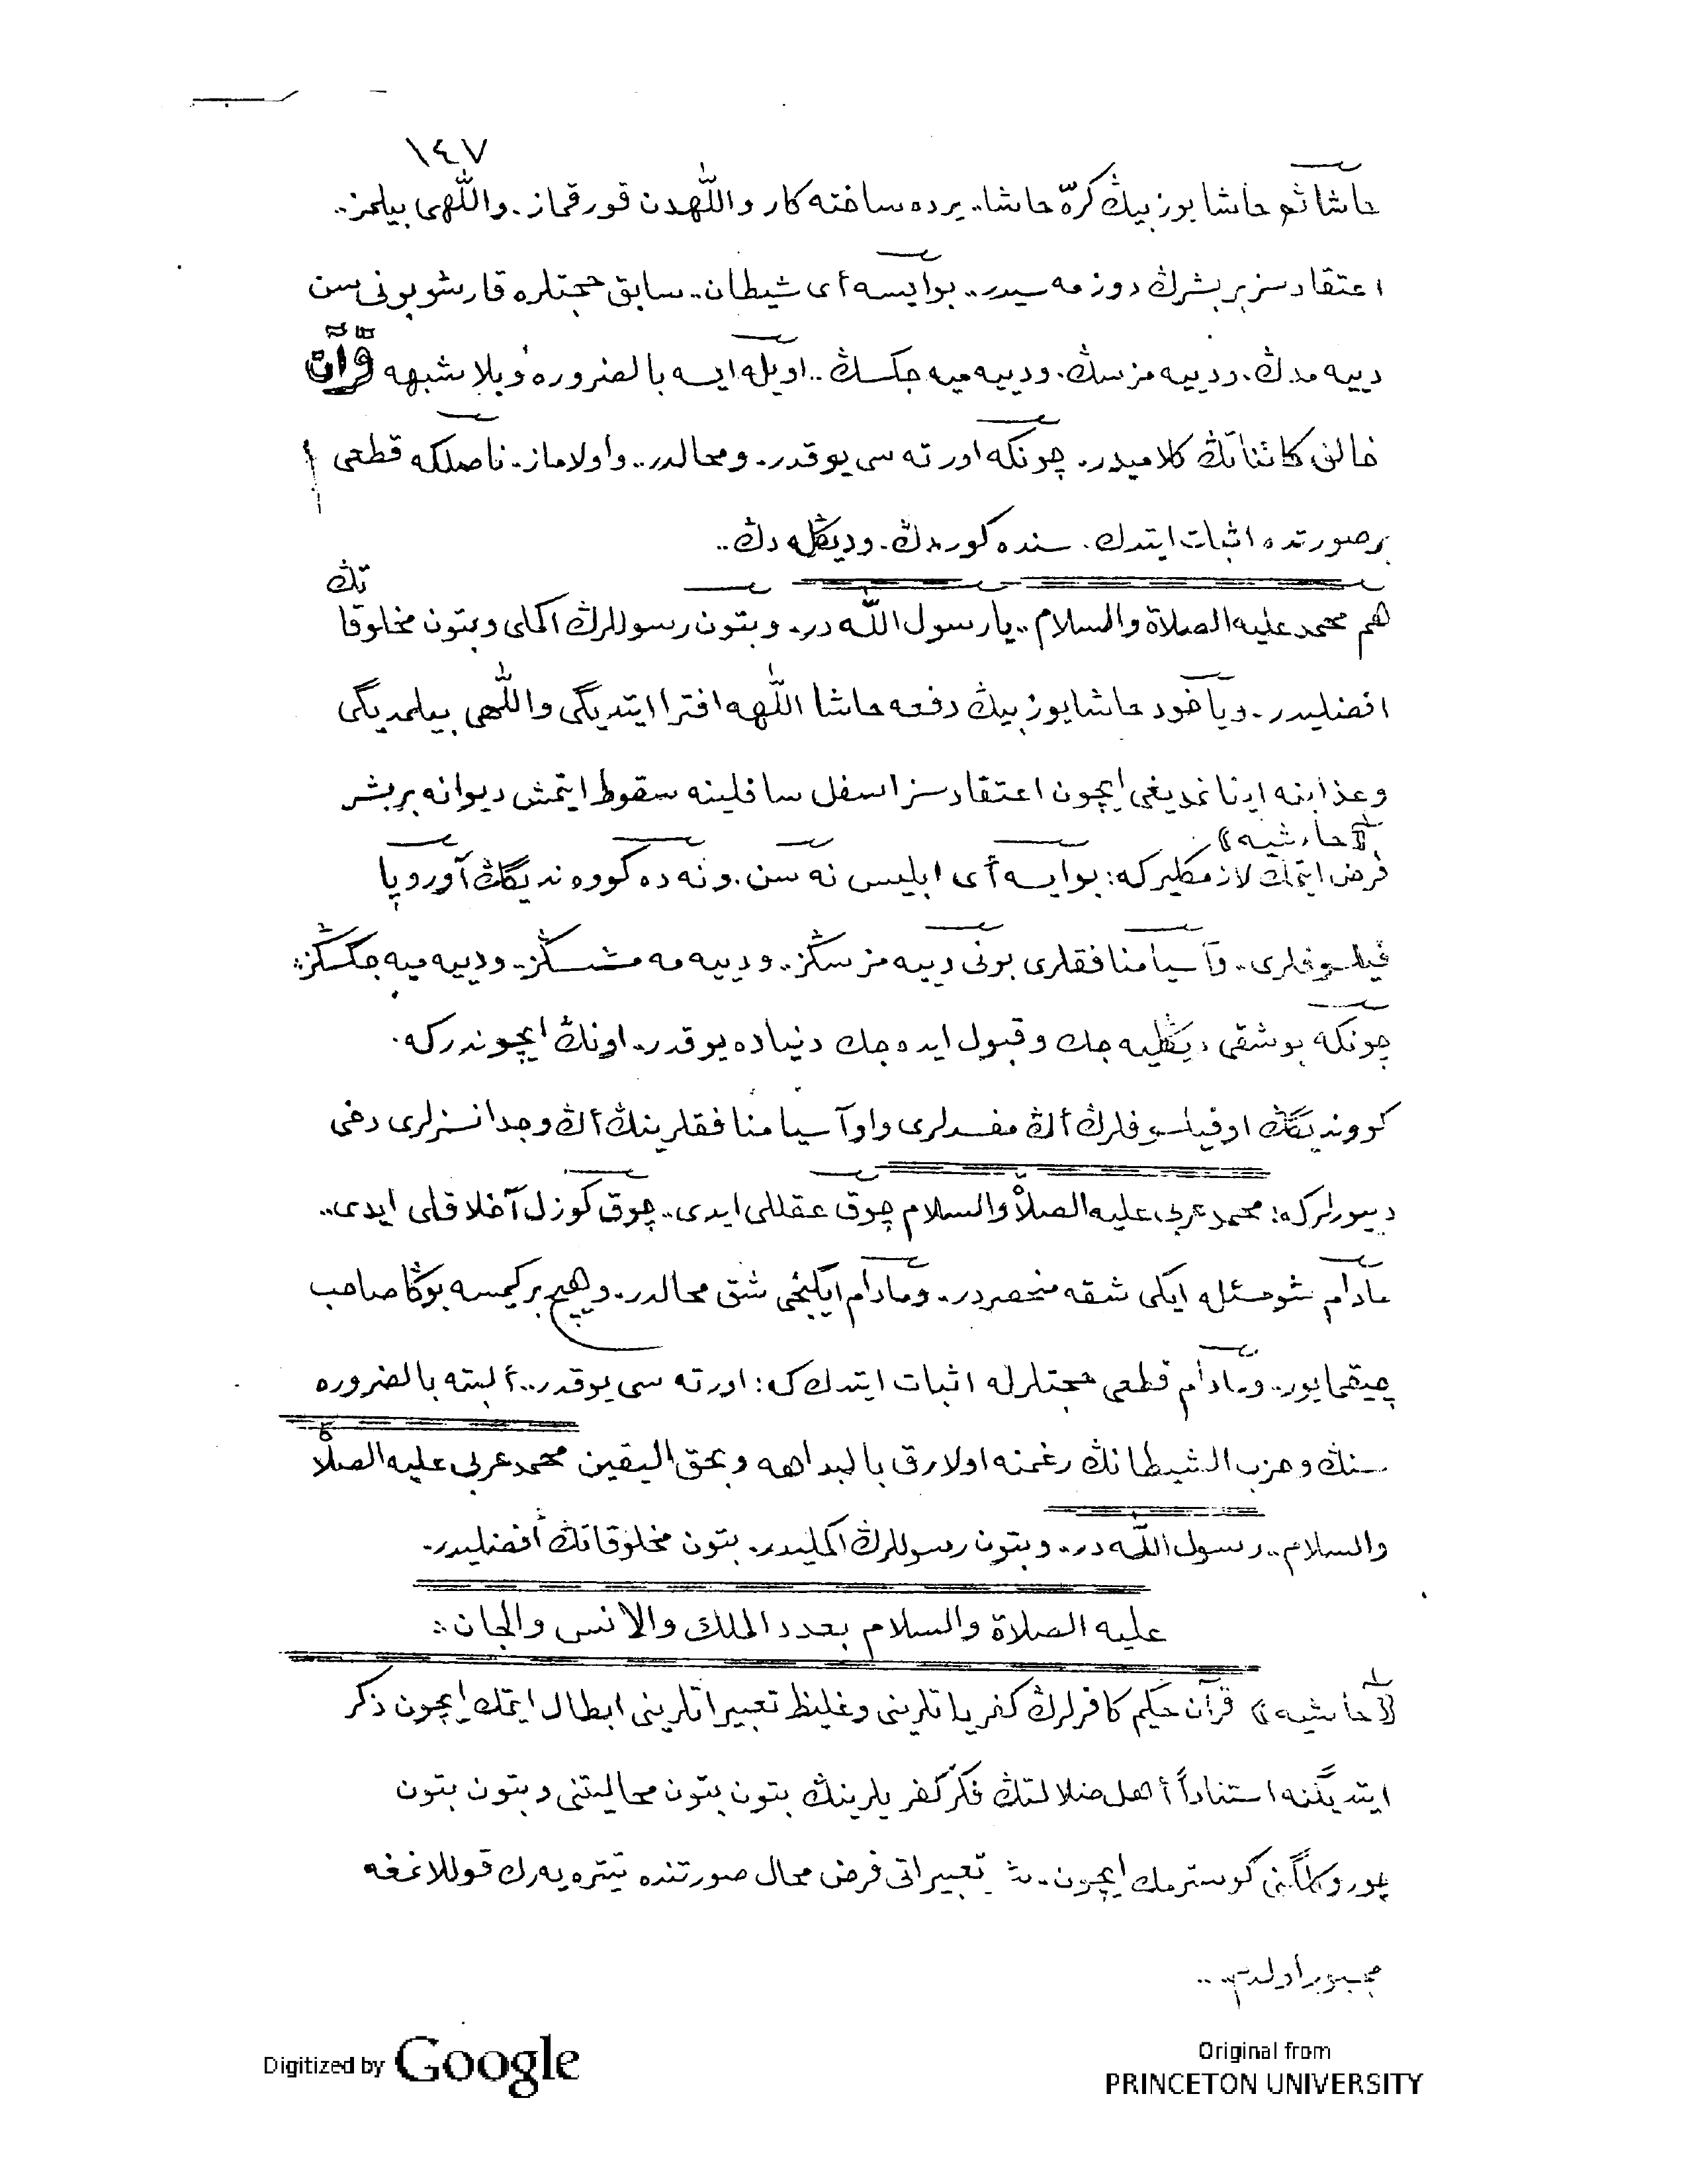 ١٤٧
حاشا ثم حاشا يوز بيڭ كرّه حاشا.. يرده ساخته كار واللّٰهدن قورقماز. واللّٰهى بيلمز..
اعتقادسز بر بشرڭ دوزمه سيدر.. بو ايسه أى شيطان.. سابق حجتلره قارشو بونى سن
دييه مدڭ. ودييه مزسڭ. ودييه ميه جكسڭ.. اويله ايسه بالضروره وبلا شبهه قرآن
خالق كائناتڭ كلاميدر. چونكه اورته سى يوقدر. ومحالدر.. واولاماز. ناصلكه قطعى
بر صورتده اثبات ايتدك. سنده كوردڭ. وديڭله دڭ..
هم محمد عليه الصلاة والسلام.. يا رسول اللّٰه در. وبتون رسوللرڭ اكملى وبتون مخلوقاتڭ
افضليدر. وياخود حاشا يوز بيڭ دفعه حاشا اللّٰهه افترا ايتديگى واللّٰهى بيلمديگى
وعذابنه اينانمديغى ايچون اعتقادسز اسفل سافلينه سقوط ايتمش ديوانه بر بشر
⟪حاشيه⟫
فرض ايتمك لازمگليركه: بو ايسه أى ابليس نه سن. و نه ده كووه نديگڭ آوروپا
فيلسوفلرى.. وآسيا منافقلرى بونى دييه مزسڭز.. ودييه مه مشسڭز.. ودييه ميه جكسڭز
چونكه بو شقى ديڭليه جك وقبول ايده جك دنياده يوقدر. اونڭ ايچوندركه.
كوونديگڭ او فيلسوفلرڭ أڭ مفسدلرى واو آسيا منافقلرينڭ أڭ وجدانسزلرى دخى
ديورلركه: محمد عربى عليه الصلاة والسلام چوق عقللى ايدى.. چوق كوزل آخلاقلى ايدى..
مادام شو مسئله ايكى شقه منحصردر. ومادام ايكنجى شق محالدر. وهيچ بر كيمسه بوڭا صاحب
چيقمايور.. ومادام قطعى حجتلرله اثبات ايتدك كه: اورته سى يوقدر.. ألبته بالضروره
سنڭ وحزب الشيطانڭ رغمنه اولارق بالبداهه وبحق اليقين محمد عربى عليه الصلاة
والسلام.. رسول اللّٰه در. وبتون رسوللرڭ اكمليدر. بتون مخلوقاتڭ أفضليدر.
عليه الصلاة والسلام بعدد الملك والانس والجان
⟪حاشيه⟫ قرآن حكيم كافرلرڭ كفرياتلرينى وغليظ تعبيراتلرينى ابطال ايتمك ايچون ذكر
ايتديگنه استناداً أهل ضلالتڭ فكر كفريلرينڭ بتون بتون محاليتنى وبتون بتون
چوروكلگنى كوسترمك ايچون. شو تعبيراتى فرض محال صورتنده تيتره يه رك قوللانمغه
مجبور أولدم..
Digitized by Google
Original from
PRINCETON UNIVERSITY